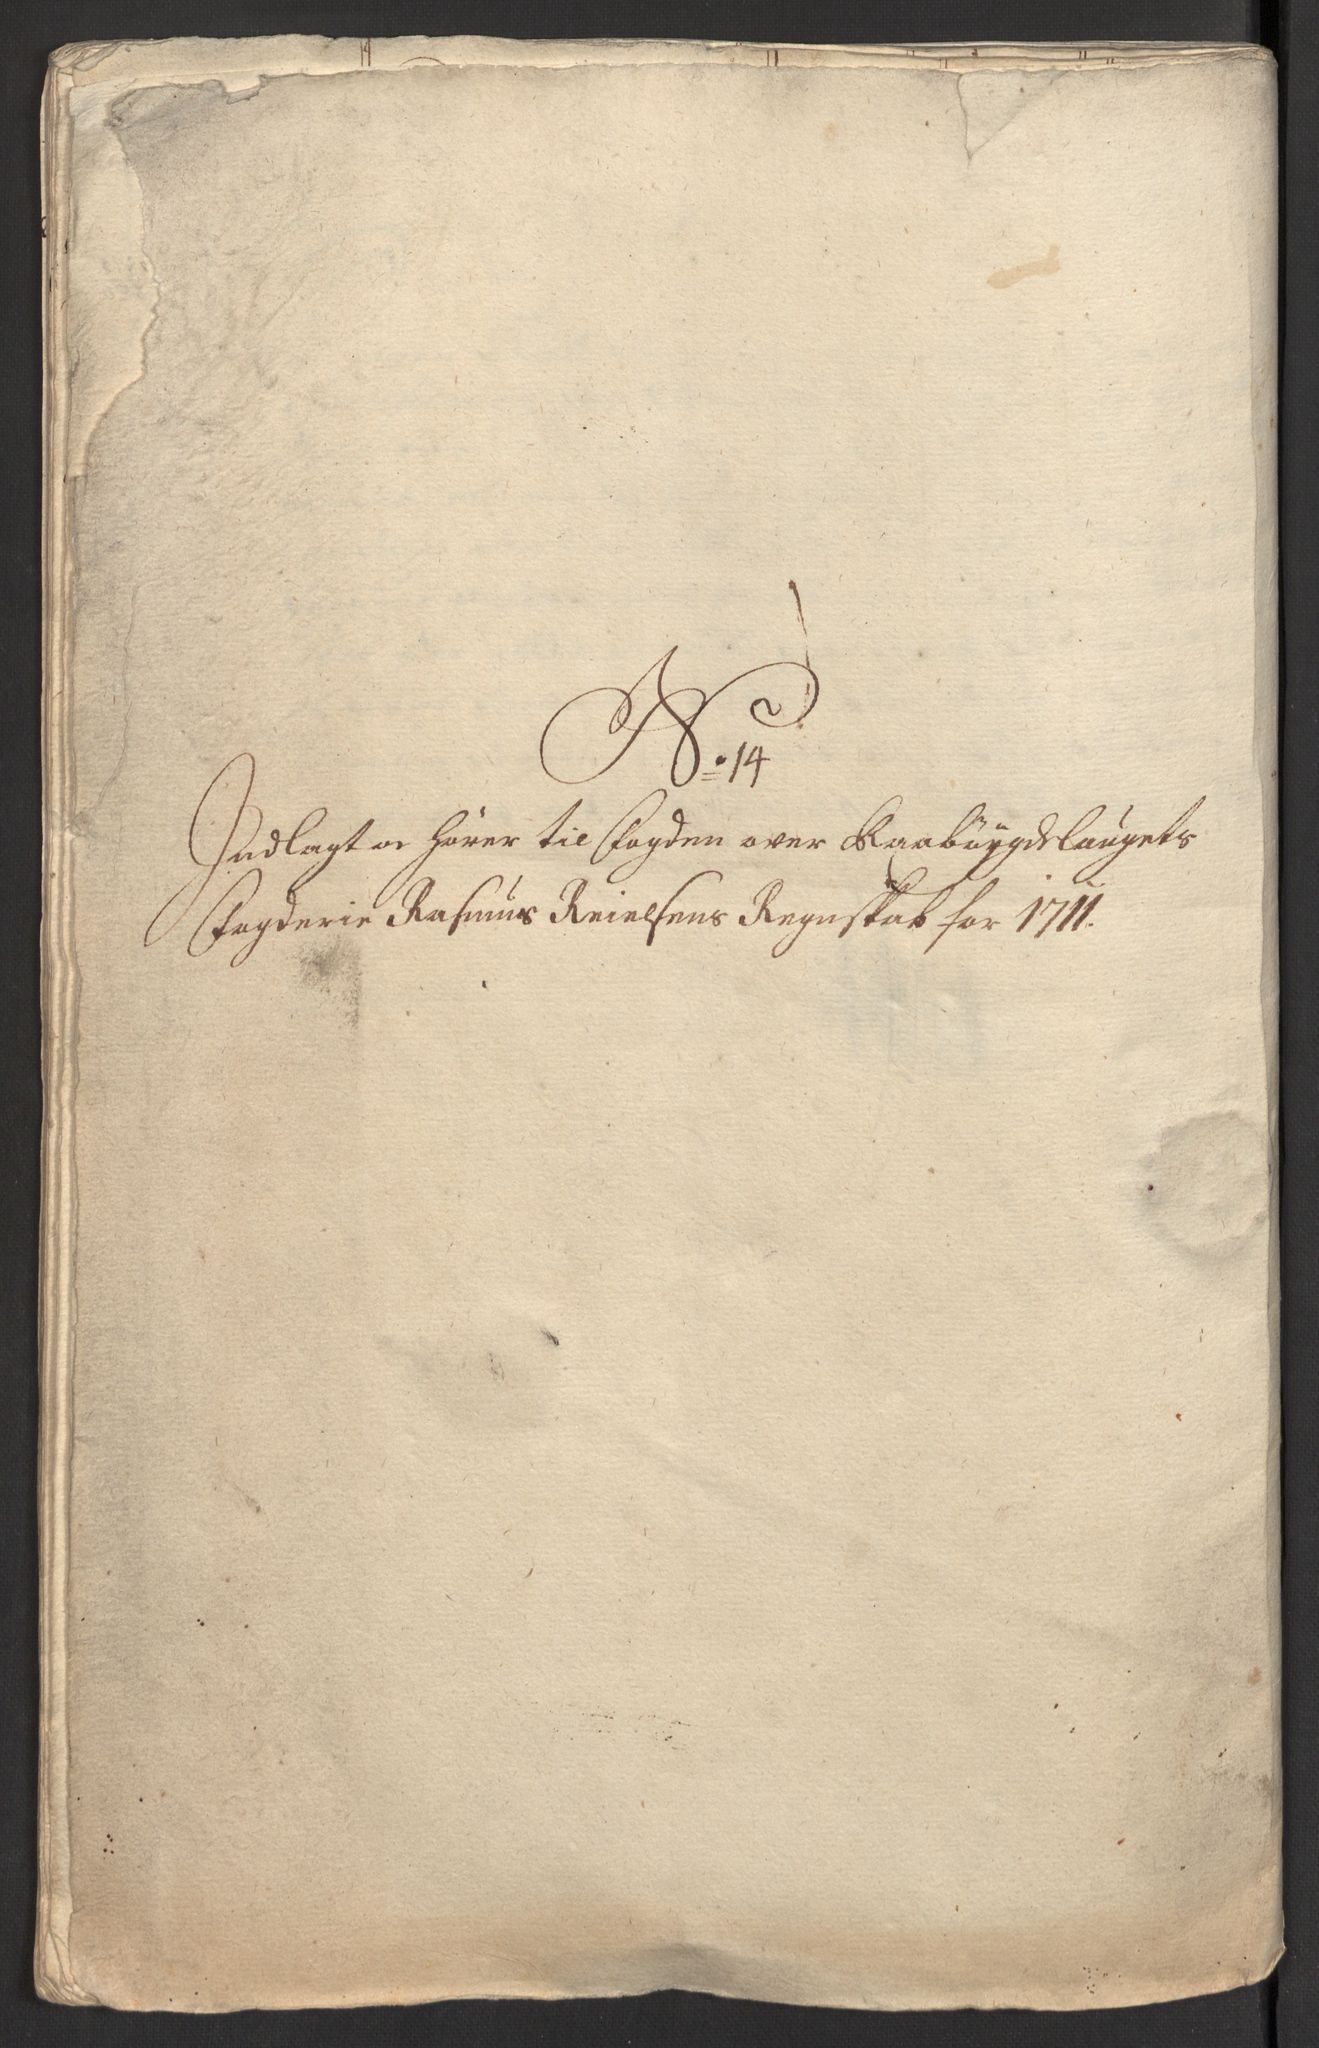 No. 14
Indlagt og hörer til Fogden over Raaböygdelaugets
Fogderie Rasmus Reielsens Regnskab for 1711.